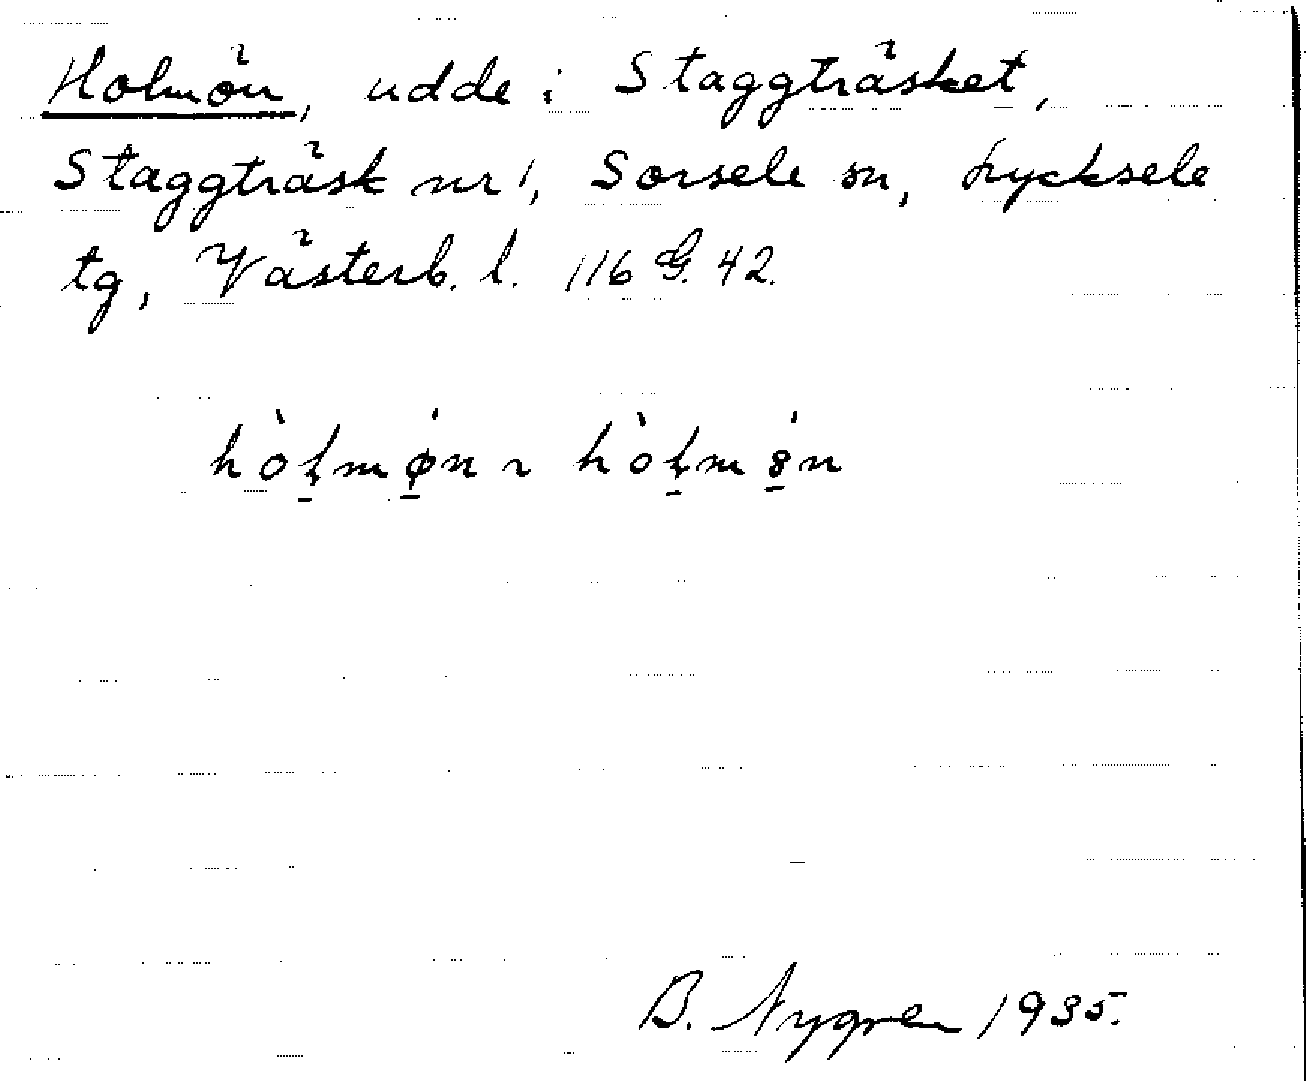 Holmön, udde i Staggträsket,
Staggträsk nr 1, Sorsele sn, Lycksele
tg, Västerb. l. 116 G. 42.
hòłmǿn ~ hòłmȣ́n
B. Nygren 1935.